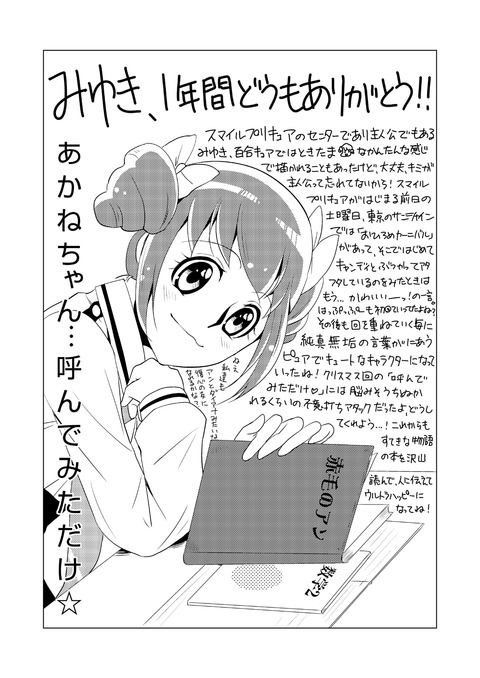 みゆき、1年間どうもありがとう!!
スマイルプリキュアのセンターであり主人公でもある
みゆき、百合キュアではときたま なかんたんな感じ
で描かれることもあったけど、大丈夫、キミが
主人公って忘れてないから!スマイル
プリキュアがはじまる前日の
土曜日、東京のサニティケイン
では「おひろめカーニバル」
があって、そこではじめて
キャンディとぶつかってアタ
フタしているのをみたときは
もう…かわいいーっ!の一言。
はっぷっぷーも初回でいってたよね?
その後も回を重ねていく毎に
純真無垢の言葉がにあう
ピュアでキュートなキャラクターになって
いったね!クリスマス回の「呼んで
みただけ♡」には脳みそうちぬか
れるくらいの不意打ちアタックだったよ、どうし
てくれよう…!これからも
すてきな物語
の本を沢山
読んで、人に伝えて
ウルトラハッピーに
なってね!
あかねちゃん…呼んでみただけ☆
ねぇ
私達も
アンとダイアナみたいな
腹心の友に
なれるかな?
赤毛のアン
数学2